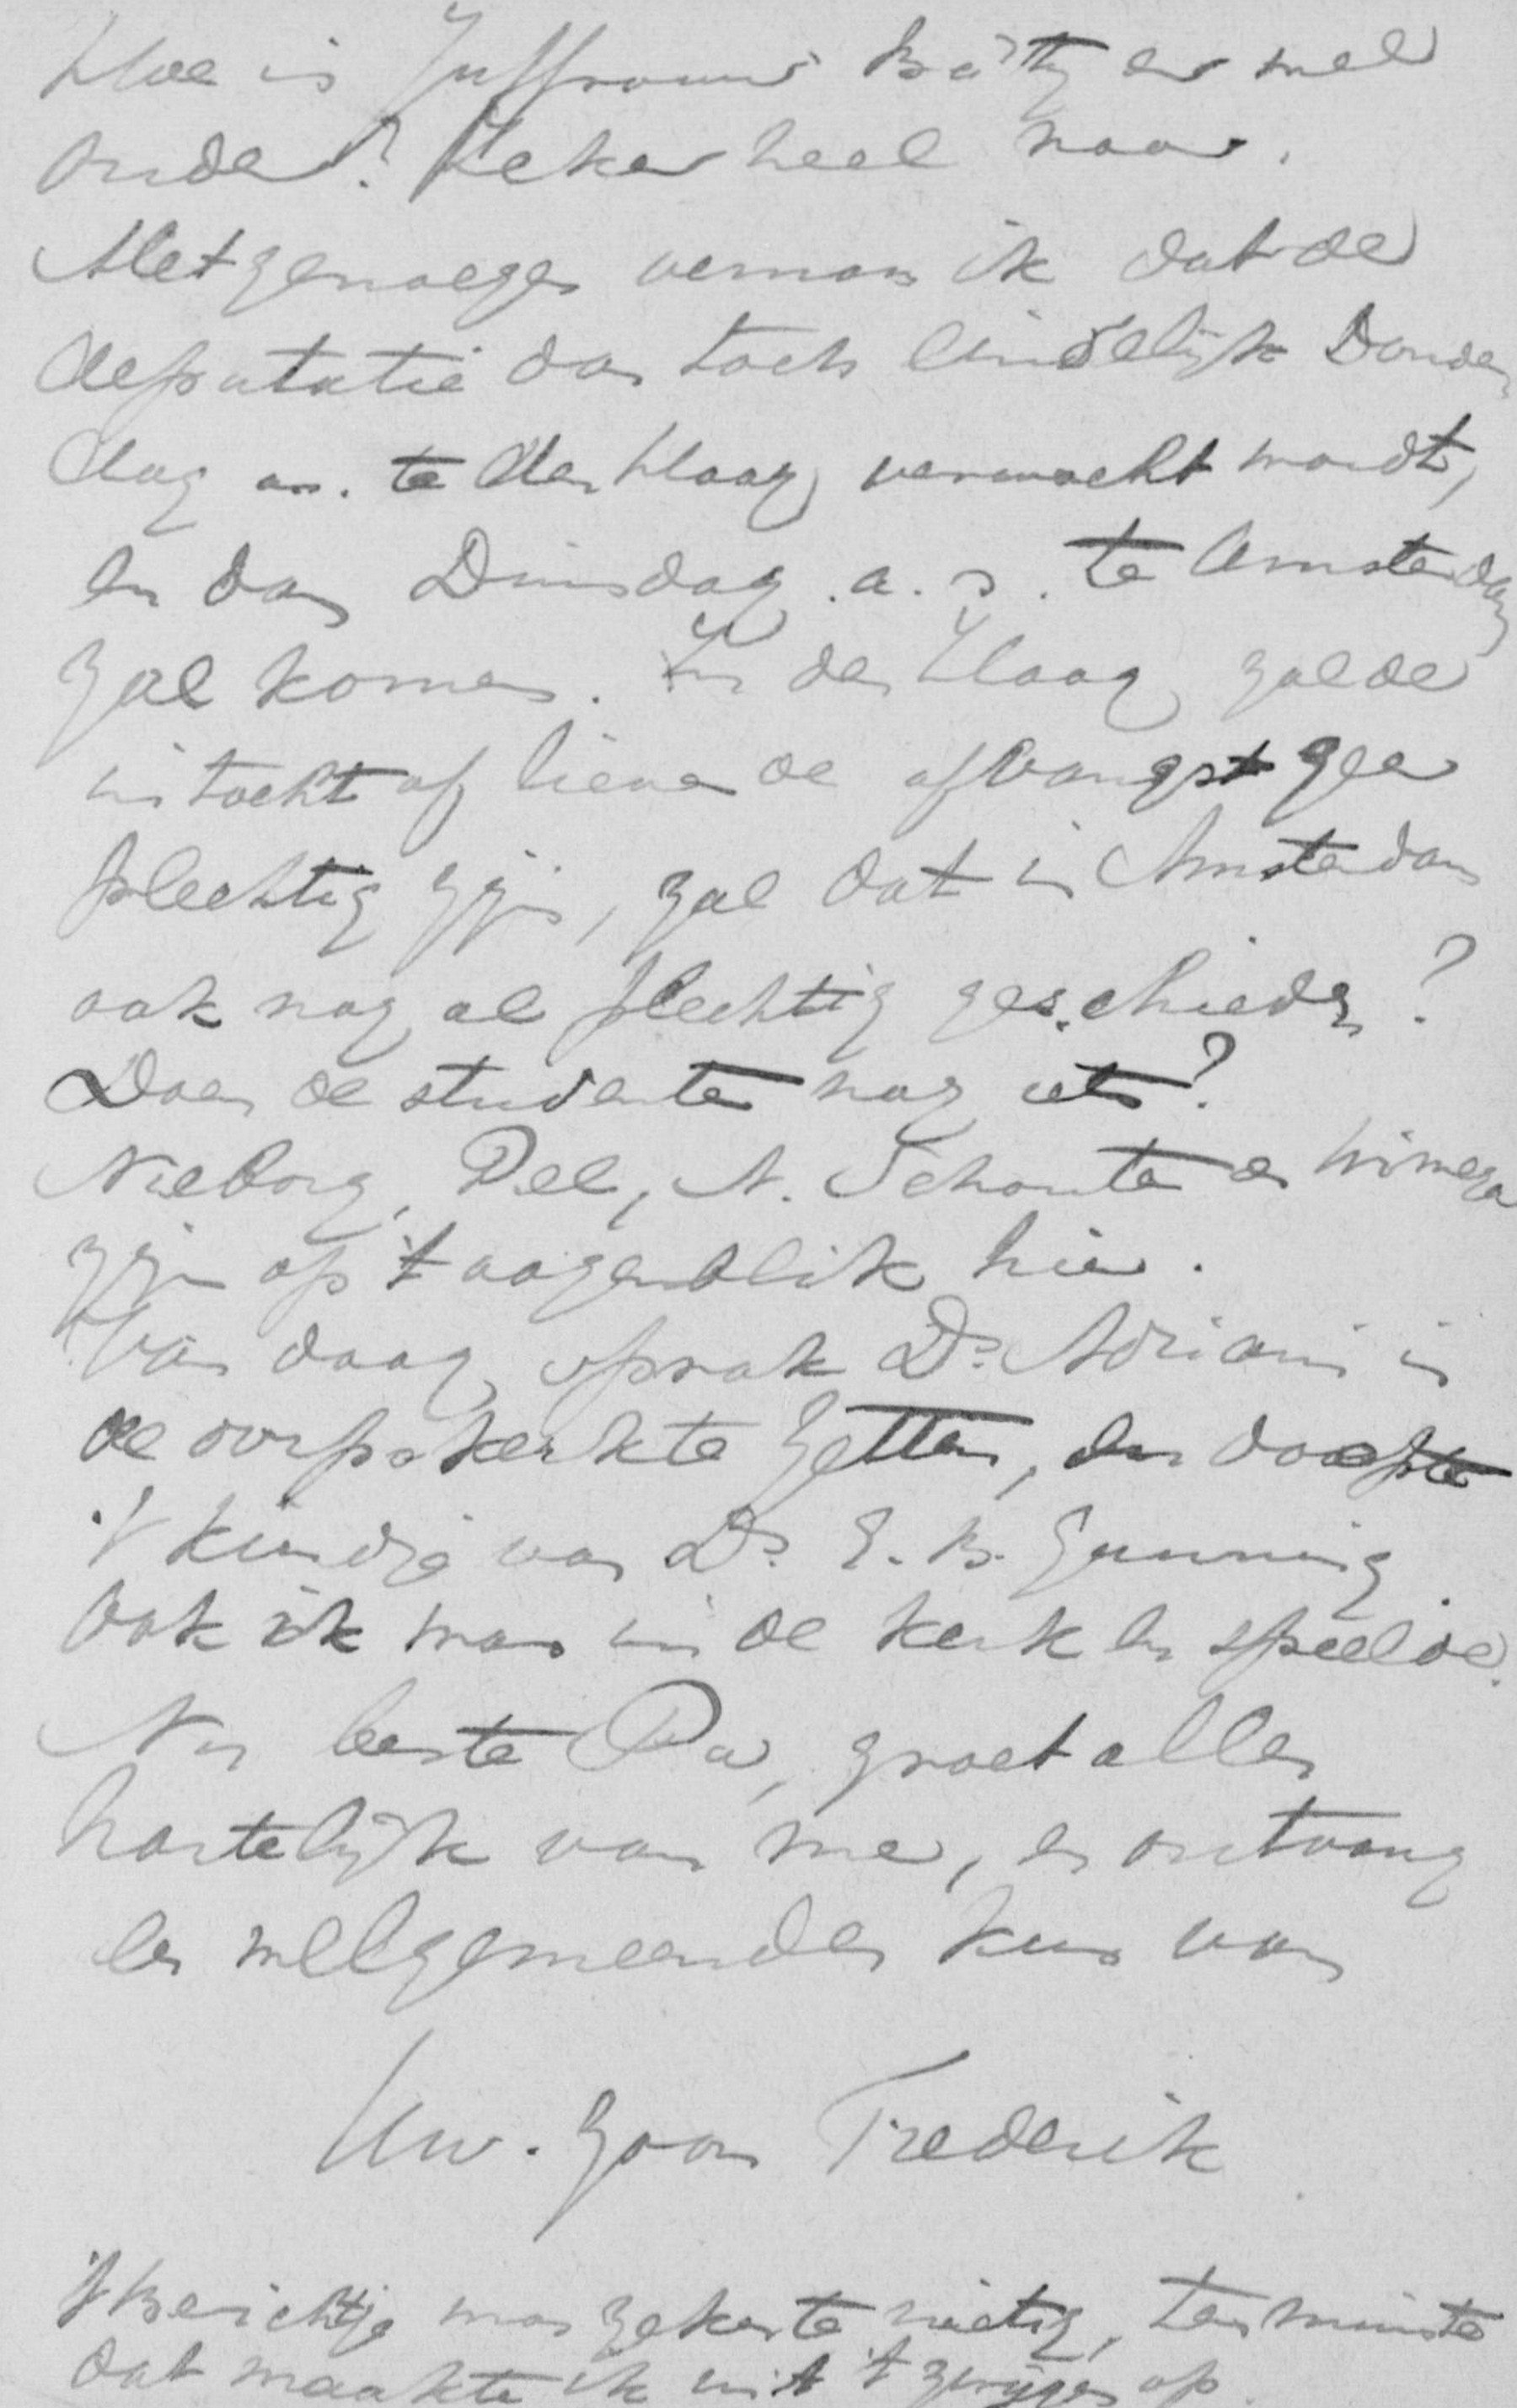 Hoe is Juffrouw Betty er wel
onder? Zeker heel naar.
Met genoegen vernam ik dat de
deputatie dan toch eindelijk Donder
dag as. te den Haag verwacht wordt,
en dan Dinsdag a.s. te Amsterdam
zal komen. In den Haag zal de
intocht of liever de ontvangst zeer
plechtig zijn, zal dat in Amsterdam
ook nog al plechtig geschieden?
Doen de studenten nog iets?
Nieborg, Pel, A. Schouten en
zijn op 't oogenblik hier.
Van daag sprak Ds. Adriani in
de dorpskerk te Zetten, en doopte
't kindje van Ds. E. B. Gunning.
Ook ik was in de kerk en speelde.
Nu beste Pa, groet allen
hartelijk van me, en ontvang
en welgemeenden kus van
Uw. Zoon Frederik
't Berichtje was zeker te nietig, ten minste
dat maakte ik uit 't zwijgen op.